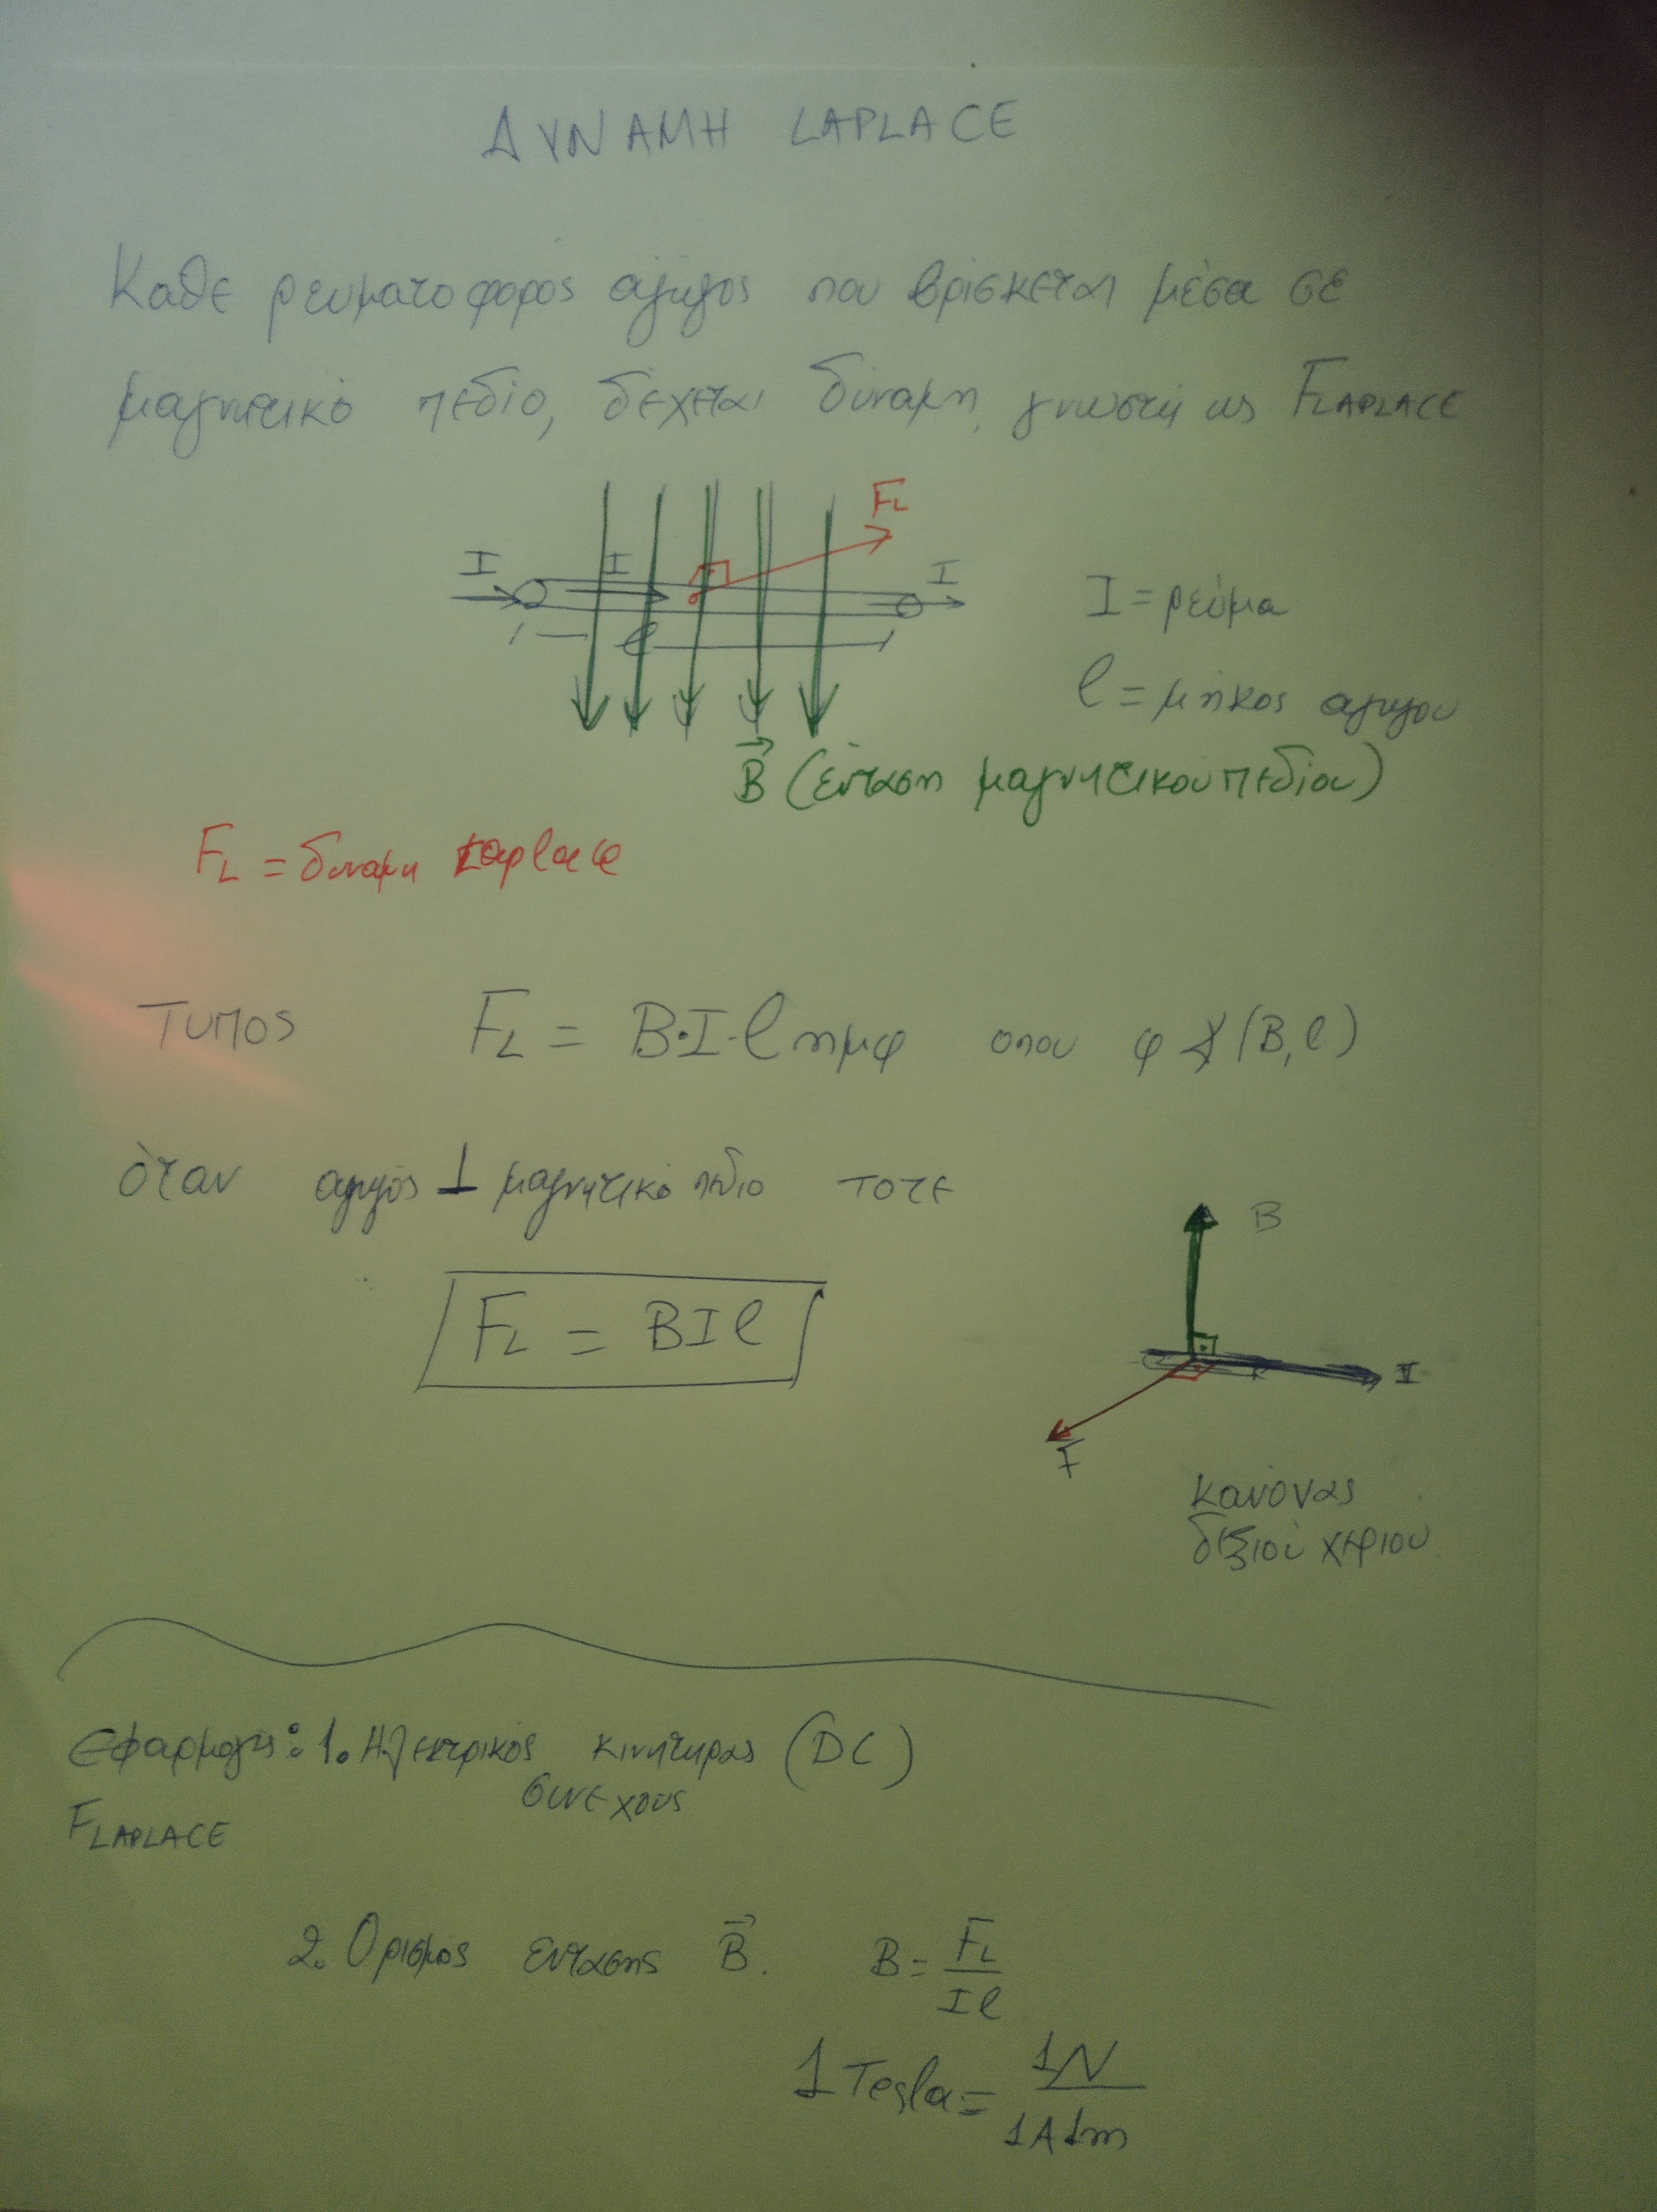 ΔΥΝΑΜΗ LAPLACE
Καθε ρευματοφορος αγωγος που βρισκεται μέσα σε
μαγνητικό πεδίο, δέχεται δύναμη, γνωστή ως FLAPLACE
FL
I I I
l
I = ρεύμα
l = μήκος αγωγου
B (ένταση μαγνητικού πεδίου)
FL = δυναμη Laplace
Τυπος FL = B·I·l ημφ οπου φ ∢(B,l)
όταν αγωγός ⊥ μαγνητικό πεδιο τοτε
B
FL = BIl
I
F
κανόνας
δεξιού χεριου
Εφαρμογές: 1. Ηλεκτρικός κινητηρας (DC)
συνεχους
FLAPLACE
2. Ορισμός εντασης B. B = FL / Il
1 Tesla = 1N / 1A 1m